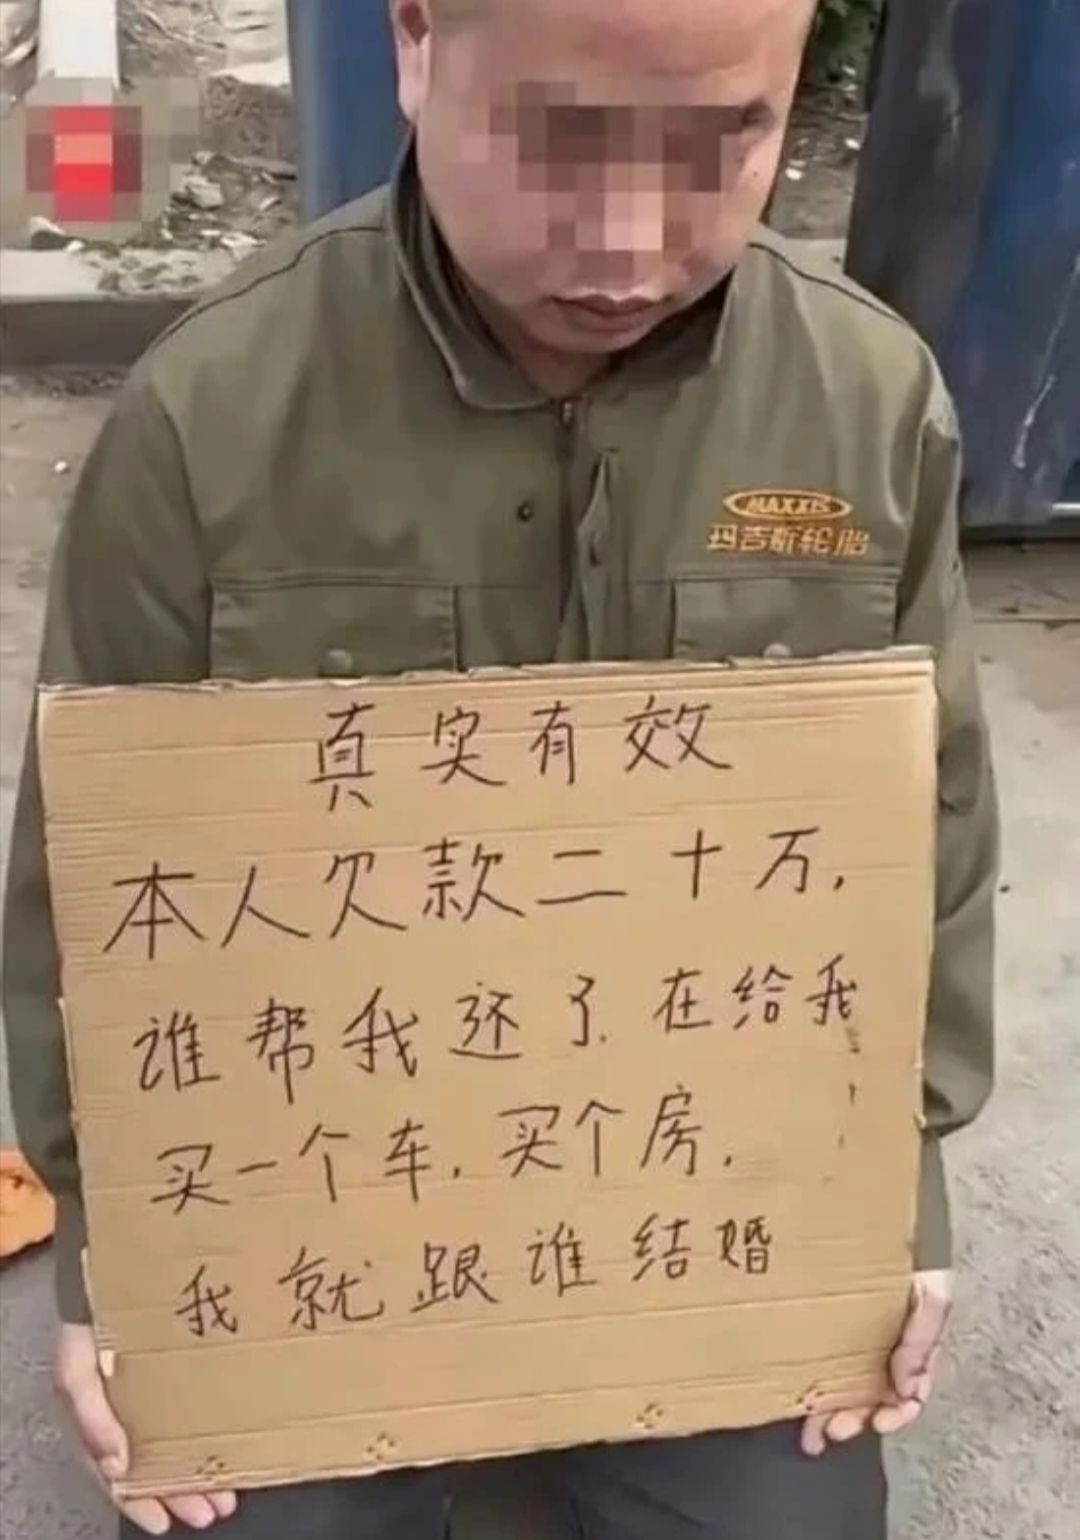 MAXXIS
玛吉斯轮胎
真实有效
本人欠款二十万，
谁帮我还了.在给我
买一个车，买个房，
我就跟谁结婚